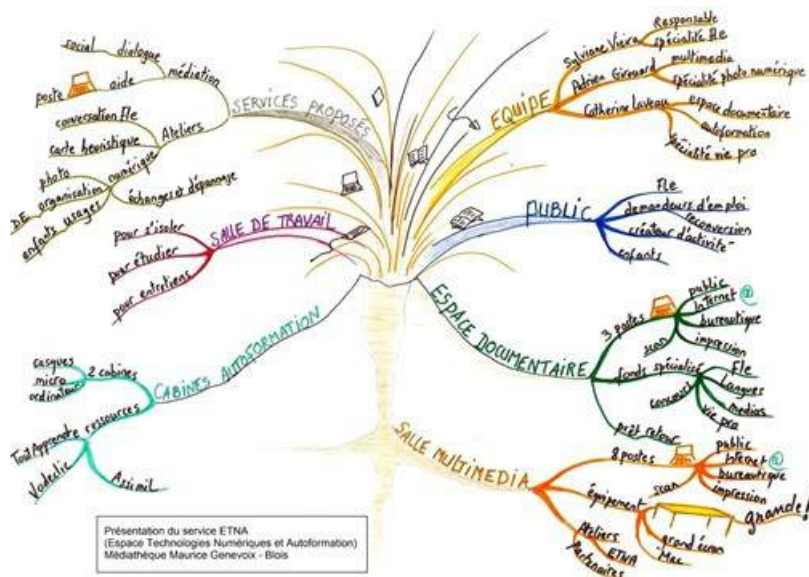 SERVICES PROPOSÉS
médiation
dialogue
social
aide
poste
Ateliers
conversation Fle
carte heuristique
numérique
photo
organisation
DE
usages
enfants
échanges & dépannage
SALLE DE TRAVAIL
pour s'isoler
pour étudier
pour entretiens
CABINES AUTOFORMATION
2 cabines
casques
micro
ordinateur
ressources
Tout Apprendre
Vodeclic
Assimil
EQUIPE
Sylviane Vieira
Responsable
spécialité Fle
Adrien Girouard
multimedia
spécialité photo numérique
Catherine Laveau
espace documentaire
autoformation
spécialité vie pro
PUBLIC
Fle
demandeurs d'emploi
reconversion
créateur d'activité
enfants
ESPACE DOCUMENTAIRE
3 postes
public
Internet
bureautique
impression
scan
fonds spécialisé
Fle
Langues
medias
vie pro
concours
prêt retour
SALLE MULTIMEDIA
8 postes
public
Internet
bureautique
impression
scan
équipement
grande!
grand écran
iMac
Ateliers
ETNA
partenaires
Présentation du service ETNA
(Espace Technologies Numériques et Autoformation)
Médiathèque Maurice Genevoix - Blois